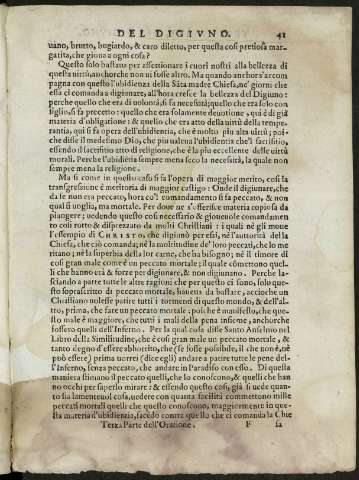 DEL DIGIVNO. 41
uano, brutto, bugiardo, & caro diletto, per questa cosi pretiosa mar-
garita, che gioua a ogni cosa?
Questo solo bastaua per affettionare i cuori nostri alla bellezza di
questa uirtù, anchorche non ui fosse altro. Ma quando anchora s'accom
pagna con questo l'ubidienza della Sāta madre Chiesa, ne' giorni che
ella ci comanda a digiunare, all'hora cresce la bellezza del Digiuno:
perche quello che era di uolontà, si fa necessità; quello che era solo con
siglio, si fa precetto: quello che era solamente deuotione, qui è di già
materia d'obligatione: & quello che era atto della uirtù della tempe-
rantia, qui si fa opera dell'ubidientia, che è molto piu alta uirtù; poi-
che disse il medesimo Dio, che piu ualeua l'ubidientia che'l sacrifitio,
essendo il sacrifitio atto di religione, che è la piu eccellente delle uirtù
morali. Perche l'ubidiētia sempre mena seco la necessità, la quale non
sempre mena la religione.
Ma sì come in questo caso si fa l'opera di maggior merito, così la
transgressione è meritoria di maggior castigo: Onde il digiunare, che
da se non era peccato, hora co'l comandamento si fa peccato, & non
qual si uoglia, ma mortale. Per doue ne s'offerisce materia copiosa da
piangere; uedendo questo così necessario & gioueuole comandamen-
to così rotto & disprezzato da molti Christiani: i quali nè gli moue
l'essempio di CHRISTO, che digiunò per essi, nè l'autorità della
Chiesa, che ciò comanda; nè la moltitudine de' loro peccati, che lo me
ritano; nè la superbia della lor carne, che ha bisogno; nè il timore di
così gran male come è un peccato mortale; il quale cōmettono quel-
li che hanno età & forze per digiunare, & non digiunano. Perche la-
sciando a parte tutte le altre ragioni che per questo ci sono, solo que-
sto soprascritto di peccato mortale, bastaua da bastare, accioche un
Christiano uolesse patire tutti i tormenti di questo mondo, & dell'al-
tro, prima, che fare un peccato mortale: poiche è manifesto, che que-
sto male è maggiore, che tutti i mali della pena insieme, anchorche
fossero quelli dell'Inferno. Per la qual cosa disse Santo Anselmo nel
Libro della Similitudine, che è così gran male un peccato mortale, &
tanto degno d'essere abhorrito, che (se fosse possibile, il che non è, nè
può essere) prima uorrei (dice egli) andare a patire tutte le pene del-
l'Inferno, senza peccato, che andare in Paradiso con esso. Di questa
maniera stimano il peccato quelli, che lo conoscono, & quelli che han
no occhi per saperlo mirare: & essendo questo così, già si uede quan-
to sia lamenteuol cosa, uedere con quanta facilità commettono mille
peccati mortali quelli che questo conoscono, maggiormente in que-
sta materia d'ubidientia, facēdo contra quello che ci comanda la Chie
Terza Parte dell'Oratione. F sa